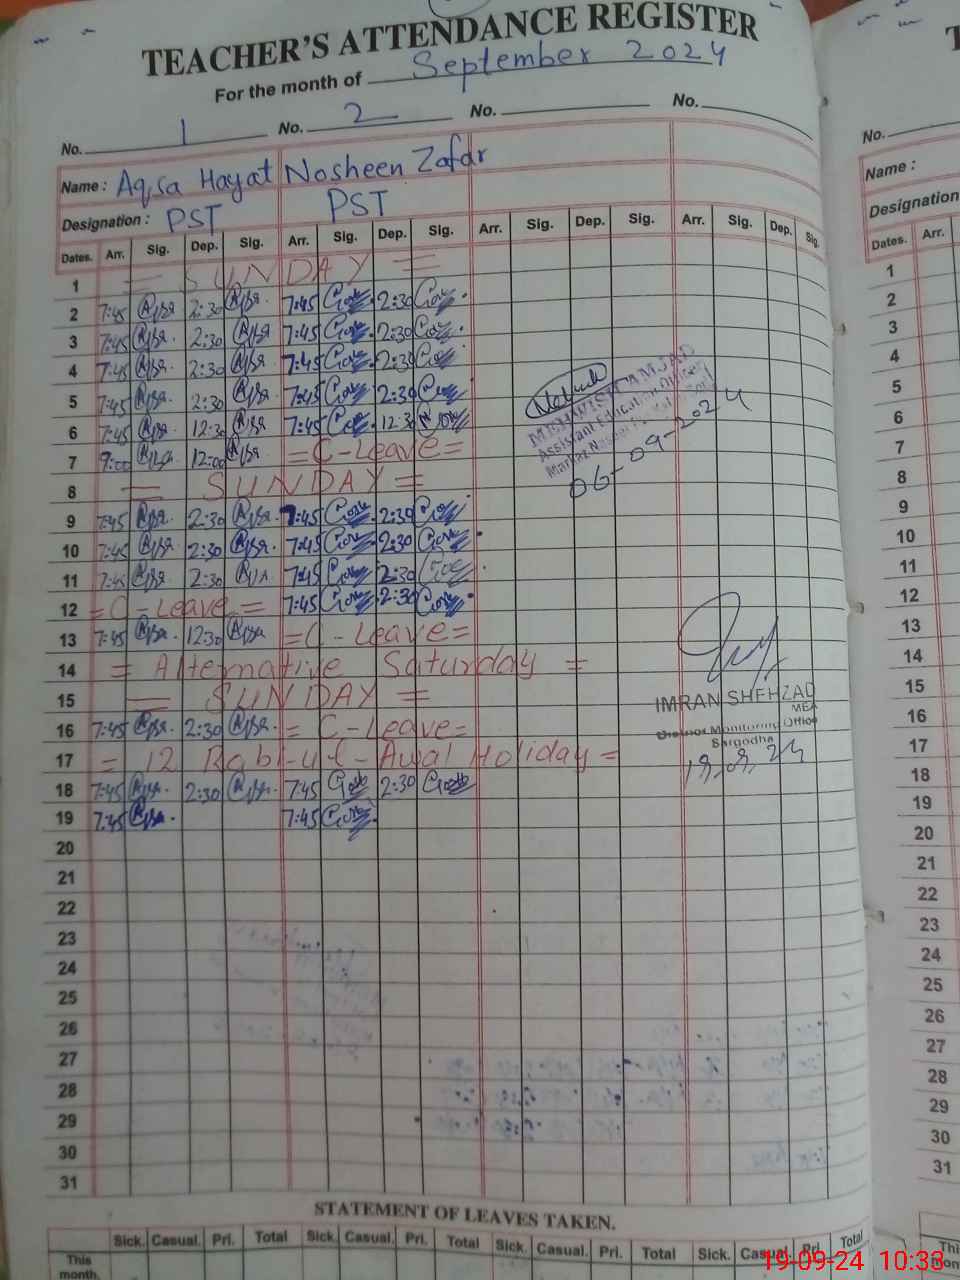 TEACHER'S ATTENDANCE REGISTER
For the month of September 2024
No. 1 No. 2 No. No.
Name : Aqsa Hayat Nosheen Zafar
Designation : PST PST
Dates. Arr. Sig. Dep. Sig. Arr. Sig. Dep. Sig. Arr. Sig. Dep. Sig. Arr. Sig. Dep. Sig.
1 = SUNDAY =
2 7:45 2:30 7:45 2:30
3 7:45 2:30 7:45 2:30
4 7:45 2:30 7:45 2:30
5 7:45 2:30 7:45 2:30
6 7:45 12:30 7:45 12:30
7 9:00 12:00 = C-Leave =
8 = SUNDAY =
9 7:45 2:30 7:45 2:30
10 7:45 2:30 7:45 2:30
11 7:45 2:30 7:45 2:30
12 = C-Leave = 7:45 2:30
13 7:45 12:30 = C-Leave =
14 = Alternative Saturday =
15 = SUNDAY =
16 7:45 2:30 = C-Leave =
17 = 12 Rabi-ul-Awal Holiday =
18 7:45 2:30 7:45 2:30
19 7:45 7:45
20
21
22
23
24
25
26
27
28
29
30
31
AMJAD
Assistant Education Officer
Markaz
06-09-2024
IMRAN SHEHZAD
MEA
District Monitoring Office
Sargodha
19.09.24
STATEMENT OF LEAVES TAKEN.
Sick. Casual. Pri. Total Sick. Casual. Pri. Total Sick. Casual. Pri. Total Sick. Casual. Pri. Total
This month.
No.
Name :
Designation
Dates. Arr.
1
2
3
4
5
6
7
8
9
10
11
12
13
14
15
16
17
18
19
20
21
22
23
24
25
26
27
28
29
30
31
19-09-24 10:33